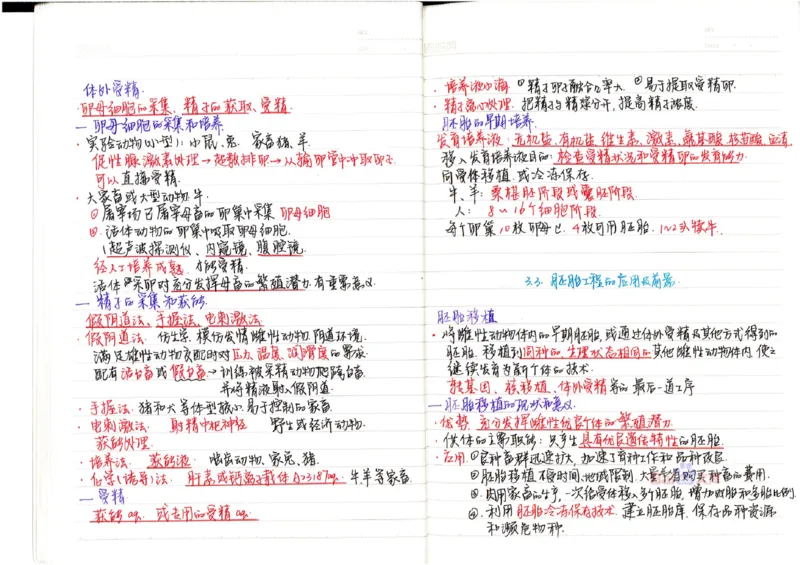 体外受精.
·卵母细胞的采集、精子的获取、受精
一 卵母细胞的采集和培养.
· 实验动物(小型): 小鼠, 兔. 家畜猪, 羊.
促性腺激素处理→超数排卵→从输卵管中冲取卵子
可以直接受精.
· 大家畜或大型动物: 牛.
① 屠宰场已屠宰母畜的卵巢中采集 卵母细胞
②. 活体动物的卵巢中吸取卵母细胞.
(超声波探测仪、内窥镜、腹腔镜.
经人工培养成熟. 才能受精.
活体采卵对充分发挥母畜的繁殖潜力有重要意义.
一 精子的采集和获能
假阴道法、手握法、电刺激法.
· 假阴道法. 仿生学. 模仿发情雌性动物阴道环境.
满足雄性动物交配时对压力, 温度, 润滑度的要求.
配有活台畜或假台畜→训练被采精动物爬跨台畜.
并将精液射入假阴道.
· 手握法. 猪和犬等体型较小. 易于控制的家畜.
· 电刺激法. 射精中枢神经 野生或经济动物.
获能处理.
· 培养法. 获能液. 啮齿动物、家兔、猪.
· 化学(诱导)法. 肝素或钙离子载体A23187aq. 牛、羊等家畜.
一 受精
获能aq. 或专用的受精aq.
· 培养液小滴 ①精子卵子融合几率大. ②易于提取受精卵.
· 精子离心处理. 把精子与精浆分开, 提高精子浓度.
胚胎的早期培养.
发育培养液: 无机盐, 有机盐, 维生素, 激素, 氨基酸, 核苷酸, 血清
移入发育培养液目的: 检查受精状况和受精卵的发育能力.
向受体移植, 或冷冻保存.
牛、羊: 桑椹胚阶段或囊胚阶段.
人: 8~16个细胞阶段.
每个卵巢10枚卵母C. 4枚可用胚胎. 1~2头犊牛.
3.3. 胚胎工程的应用及前景.
胚胎移植
· 将雌性动物体内的早期胚胎, 或通过体外受精及其他方式得到的
胚胎. 移植到同种的, 生理状态相同的其他雌性动物体内, 使之
继续发育为新个体的技术.
转基因、核移植、体外受精等的最后一道工序
一 胚胎移植的现状和意义.
· 优势 充分发挥雌性优良个体的繁殖潜力.
· 供体的主要职能: 只产生具有优良遗传特性的胚胎.
· 应用. ①良种畜群迅速扩大, 加速了育种工作和品种改良
②胚胎移植 不受时间、地域限制. 大量节省购买种畜的费用.
③. 肉用家畜的生产, 一次给受体移入多个胚胎, 增加双胎和多胎比例.
④. 利用胚胎冷冻保存技术. 建立胚胎库. 保存品种资源
和濒危物种.